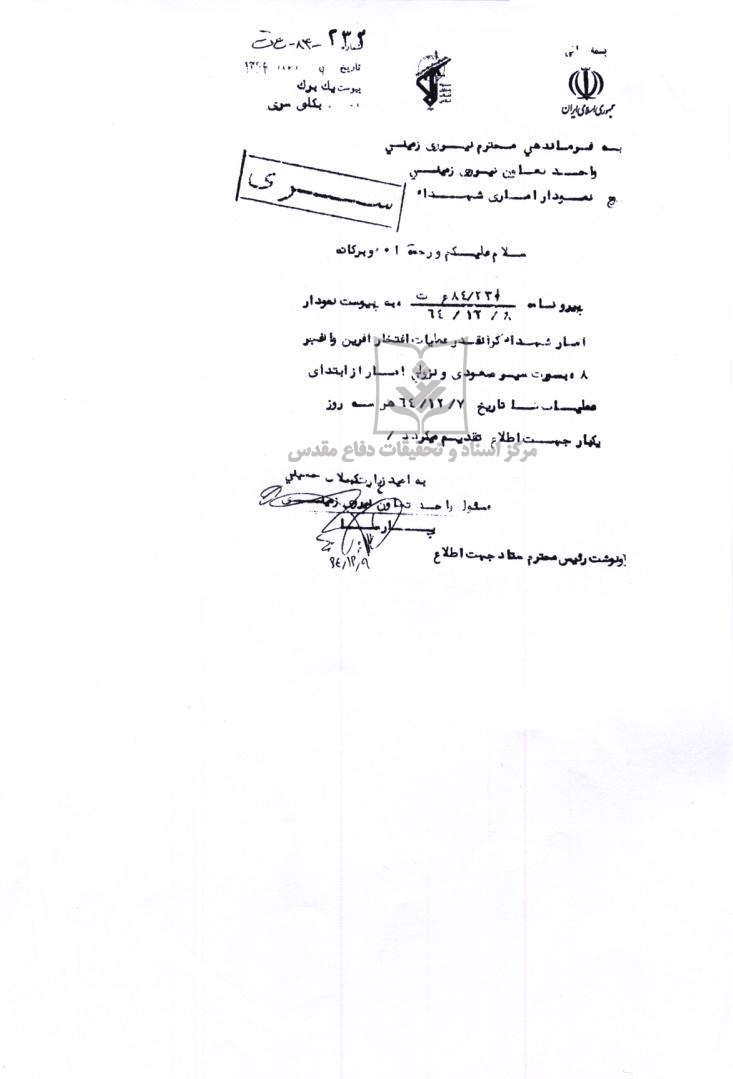 بسمه
جمهوری اسلامی ایران
شماره ۲۳۲-۸۴-ع ت
تاریخ
پیوست یک برگ
بکلی سری
به فرماندهی محترم نیروی زمینی
واحد تعاون نیروی زمینی
نمودار اماری شهداء
ســری
سلام علیکم و رحمة ا... و برکاته
پیرو نامه ۸٤/۲۳۰ع ت به پیوست نمودار
۸ / ۱۲ / ٦٤
امار شهداء گرانقدر عملیات افتخار آفرین والفجر
۸ بصورت سیر صعودی و نزولی امار از ابتدای
عملیات تا تاریخ ٦٤/۱۲/۷ هر سه روز
یکبار جهت اطلاع تقدیم میگردد /
مرکز اسناد و تحقیقات دفاع مقدس
به امید زیارت کربلای حسینی
مسئول واحد تعاون نیروی زمینی
پارسا
٦٤/۱۲/۹
رونوشت رئیس محترم ستاد جهت اطلاع